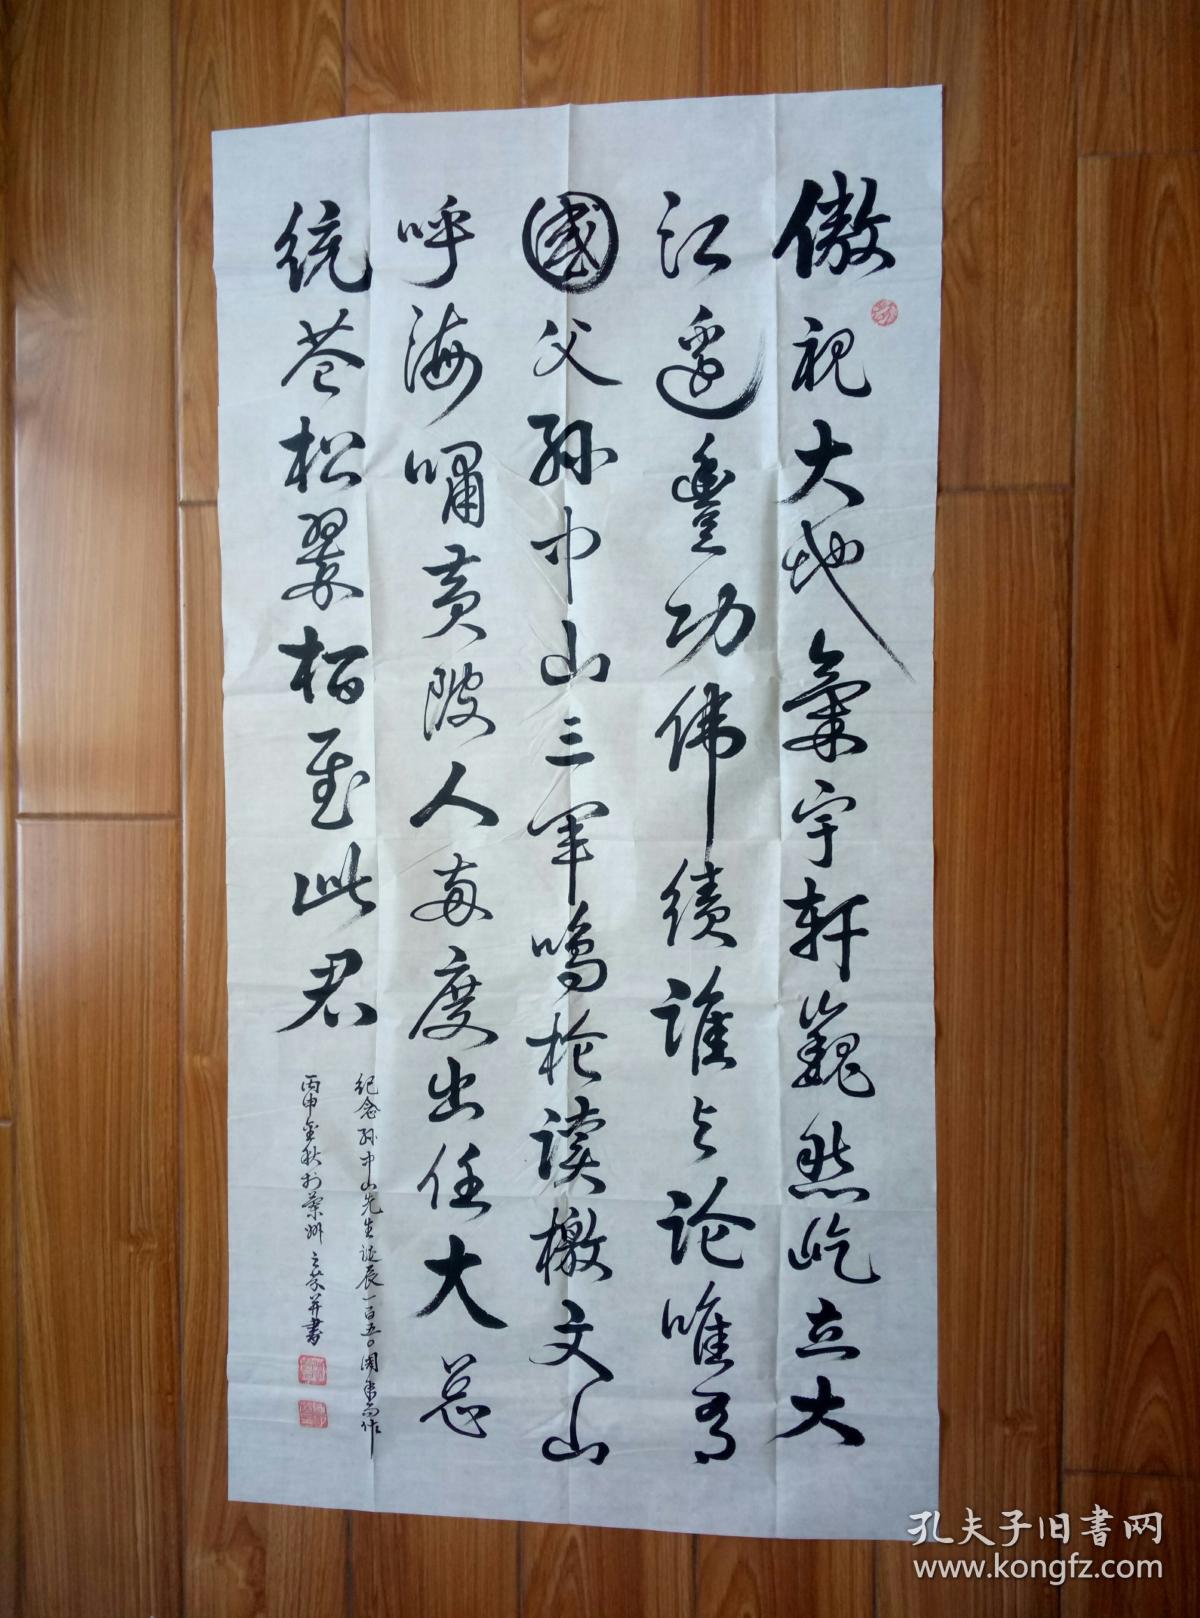 傲视大地氣宇轩巍然屹立大
江邊豐功伟绩谁与论唯有
國父孙中山三军鸣枪读檄文山
呼海啸黄陂人两度出任大总
统苍松翠柏慰此君
纪念孙中山先生诞辰一百五〇周年而作
丙申金秋於兰州 并書
孔夫子旧書网
www.kongfz.com